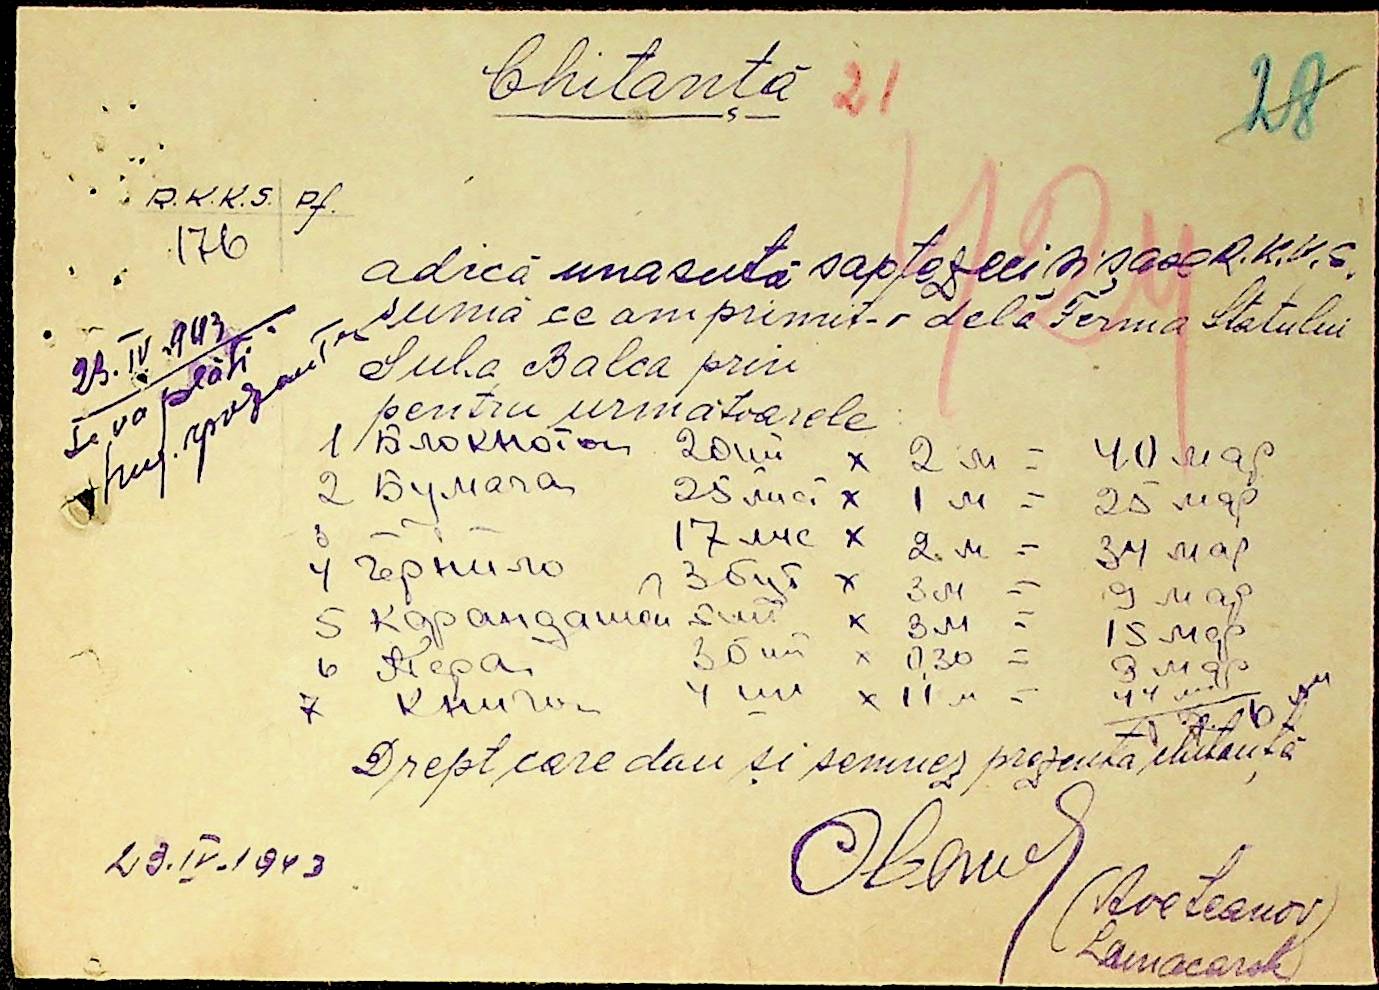 Chitanță 21
28
R.K.K.S. Pf.
176
424
adică unasută saptezeci și șase R.K.K.S.
sumă ce am primit-o dela Ferma Statului
Suha Balca prin
pentru urmatoarele
23.IV.1943
Se va plăti
1 Блокнота 20 шт × 2 м = 40 мар
2 Бумага 25 лист × 1 м = 25 мар
3 17 лис × 2 м = 34 мар
4 Чернило 3 бут × 3 м = 9 мар
5 Карандаши 5 шт × 3 м = 15 мар
6 Пера 30 шт × 0,30 = 9 мар
7 Книга 4 шт × 11 м = 44 м
Drept care dau și semnez prezenta chitanță
23.IV.1943